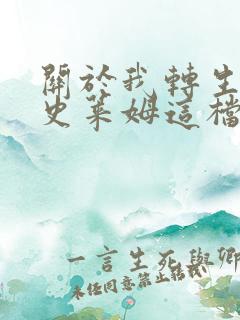 關於我轉生
史萊姆這檔
一言生死與卿
未任同意禁止轉載